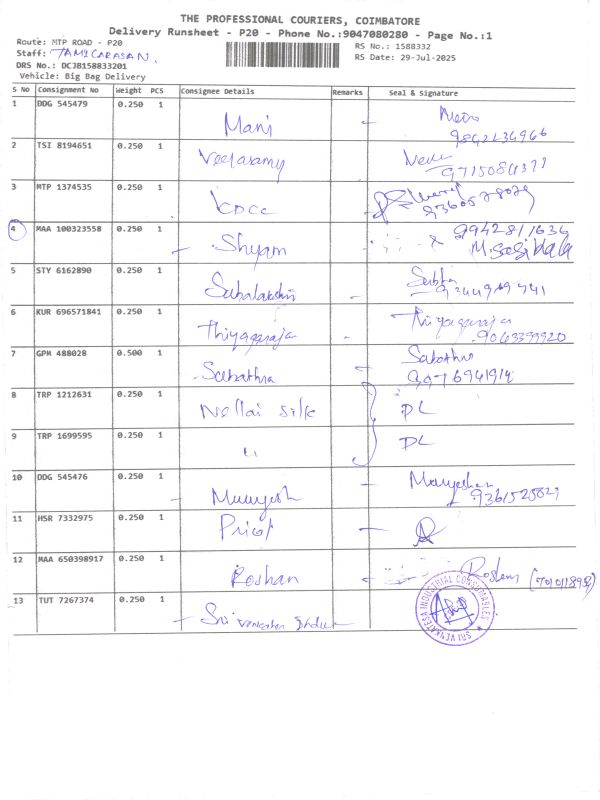 THE PROFESSIONAL COURIERS, COIMBATORE
Delivery Runsheet - P20 - Phone No.:9047080280 - Page No.:1
Route: MTP ROAD - P20
RS No.: 1588332
Staff: TAMILARASAN.
RS Date: 29-Jul-2025
DRS No.: DCJB158833201
Vehicle: Big Bag Delivery
S No Consignment No Weight PCS Consignee Details Remarks Seal & Signature
1 DDG 545479 0.250 1 Mani
2 TSI 8194651 0.250 1 Veerasamy
3 MTP 1374535 0.250 1
4 MAA 100323558 0.250 1 Shyam M.Sasi kala
5 STY 6162890 0.250 1 Subalakshmi
6 KUR 696571841 0.250 1 Thiyagaraja Thiyagaraja 9043399920
7 GPM 488028 0.500 1 Sabathra
8 TRP 1212631 0.250 1 Nellai Silk DL
9 TRP 1699595 0.250 1 " DL
10 DDG 545476 0.250 1 Murugesh
11 HSR 7332975 0.250 1 Pricol
12 MAA 650398917 0.250 1 Roshan
13 TUT 7267374 0.250 1 Sri
SRI VENKATESA INDUSTRIAL CONSUMABLES